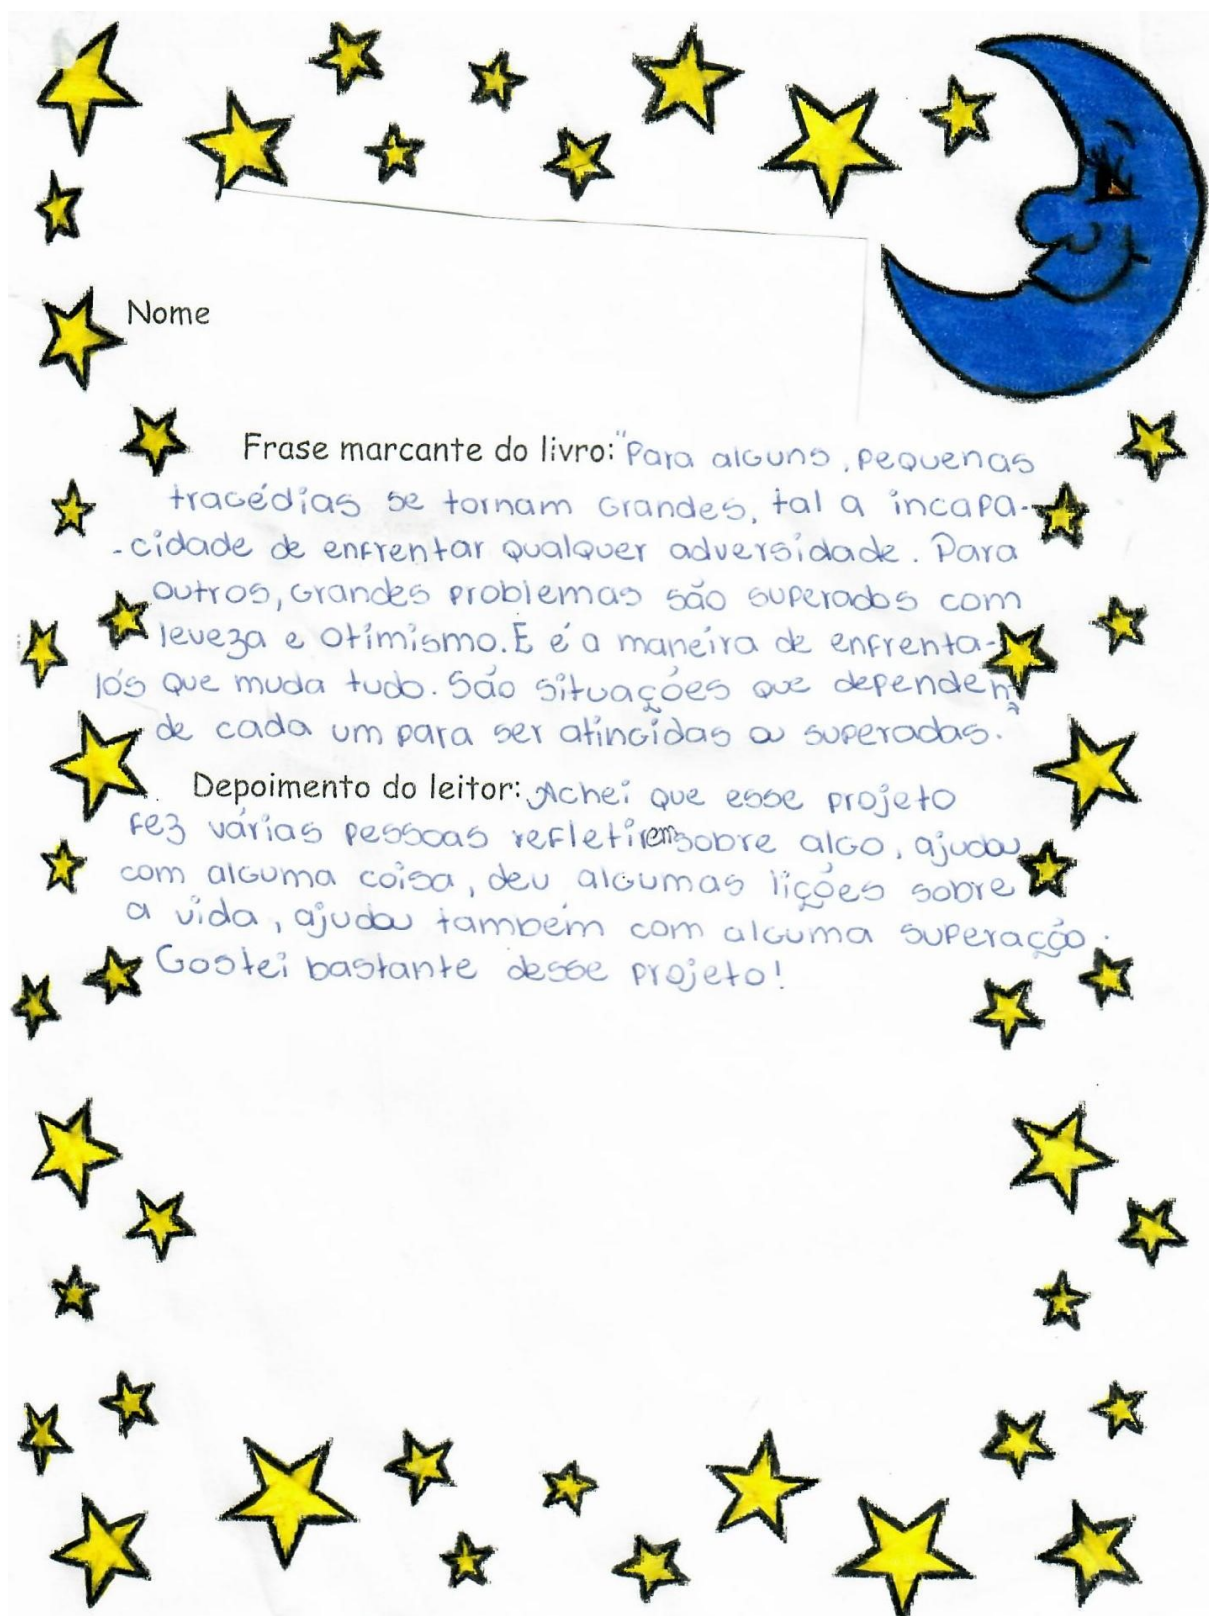 Nome
Frase marcante do livro: "Para alguns, pequenas
tragédias se tornam grandes, tal a incapa-
-cidade de enfrentar qualquer adversidade. Para
outros, grandes problemas são superados com
leveza e otimismo. E é a maneira de enfrenta-
lós que muda tudo. São situações que dependem
de cada um para ser atingidas ou superadas."
Depoimento do leitor: Achei que esse projeto
fez várias pessoas refletirem sobre algo, ajudou
com alguma coisa, deu algumas lições sobre
a vida, ajudou também com alguma superação.
Gostei bastante desse projeto!